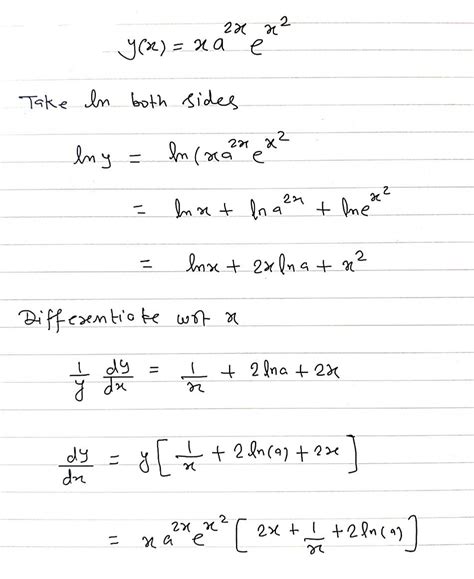 y(x) = x a^{2x} e^{x^2}
Take ln both sides
ln y = ln(x a^{2x} e^{x^2}
= ln x + ln a^{2x} + ln e^{x^2}
= ln x + 2x ln a + x^2
Differentiate wrt x
1/y dy/dx = 1/x + 2 ln a + 2x
dy/dx = y [ 1/x + 2 ln(a) + 2x ]
= x a^{2x} e^{x^2} [ 2x + 1/x + 2 ln(a) ]